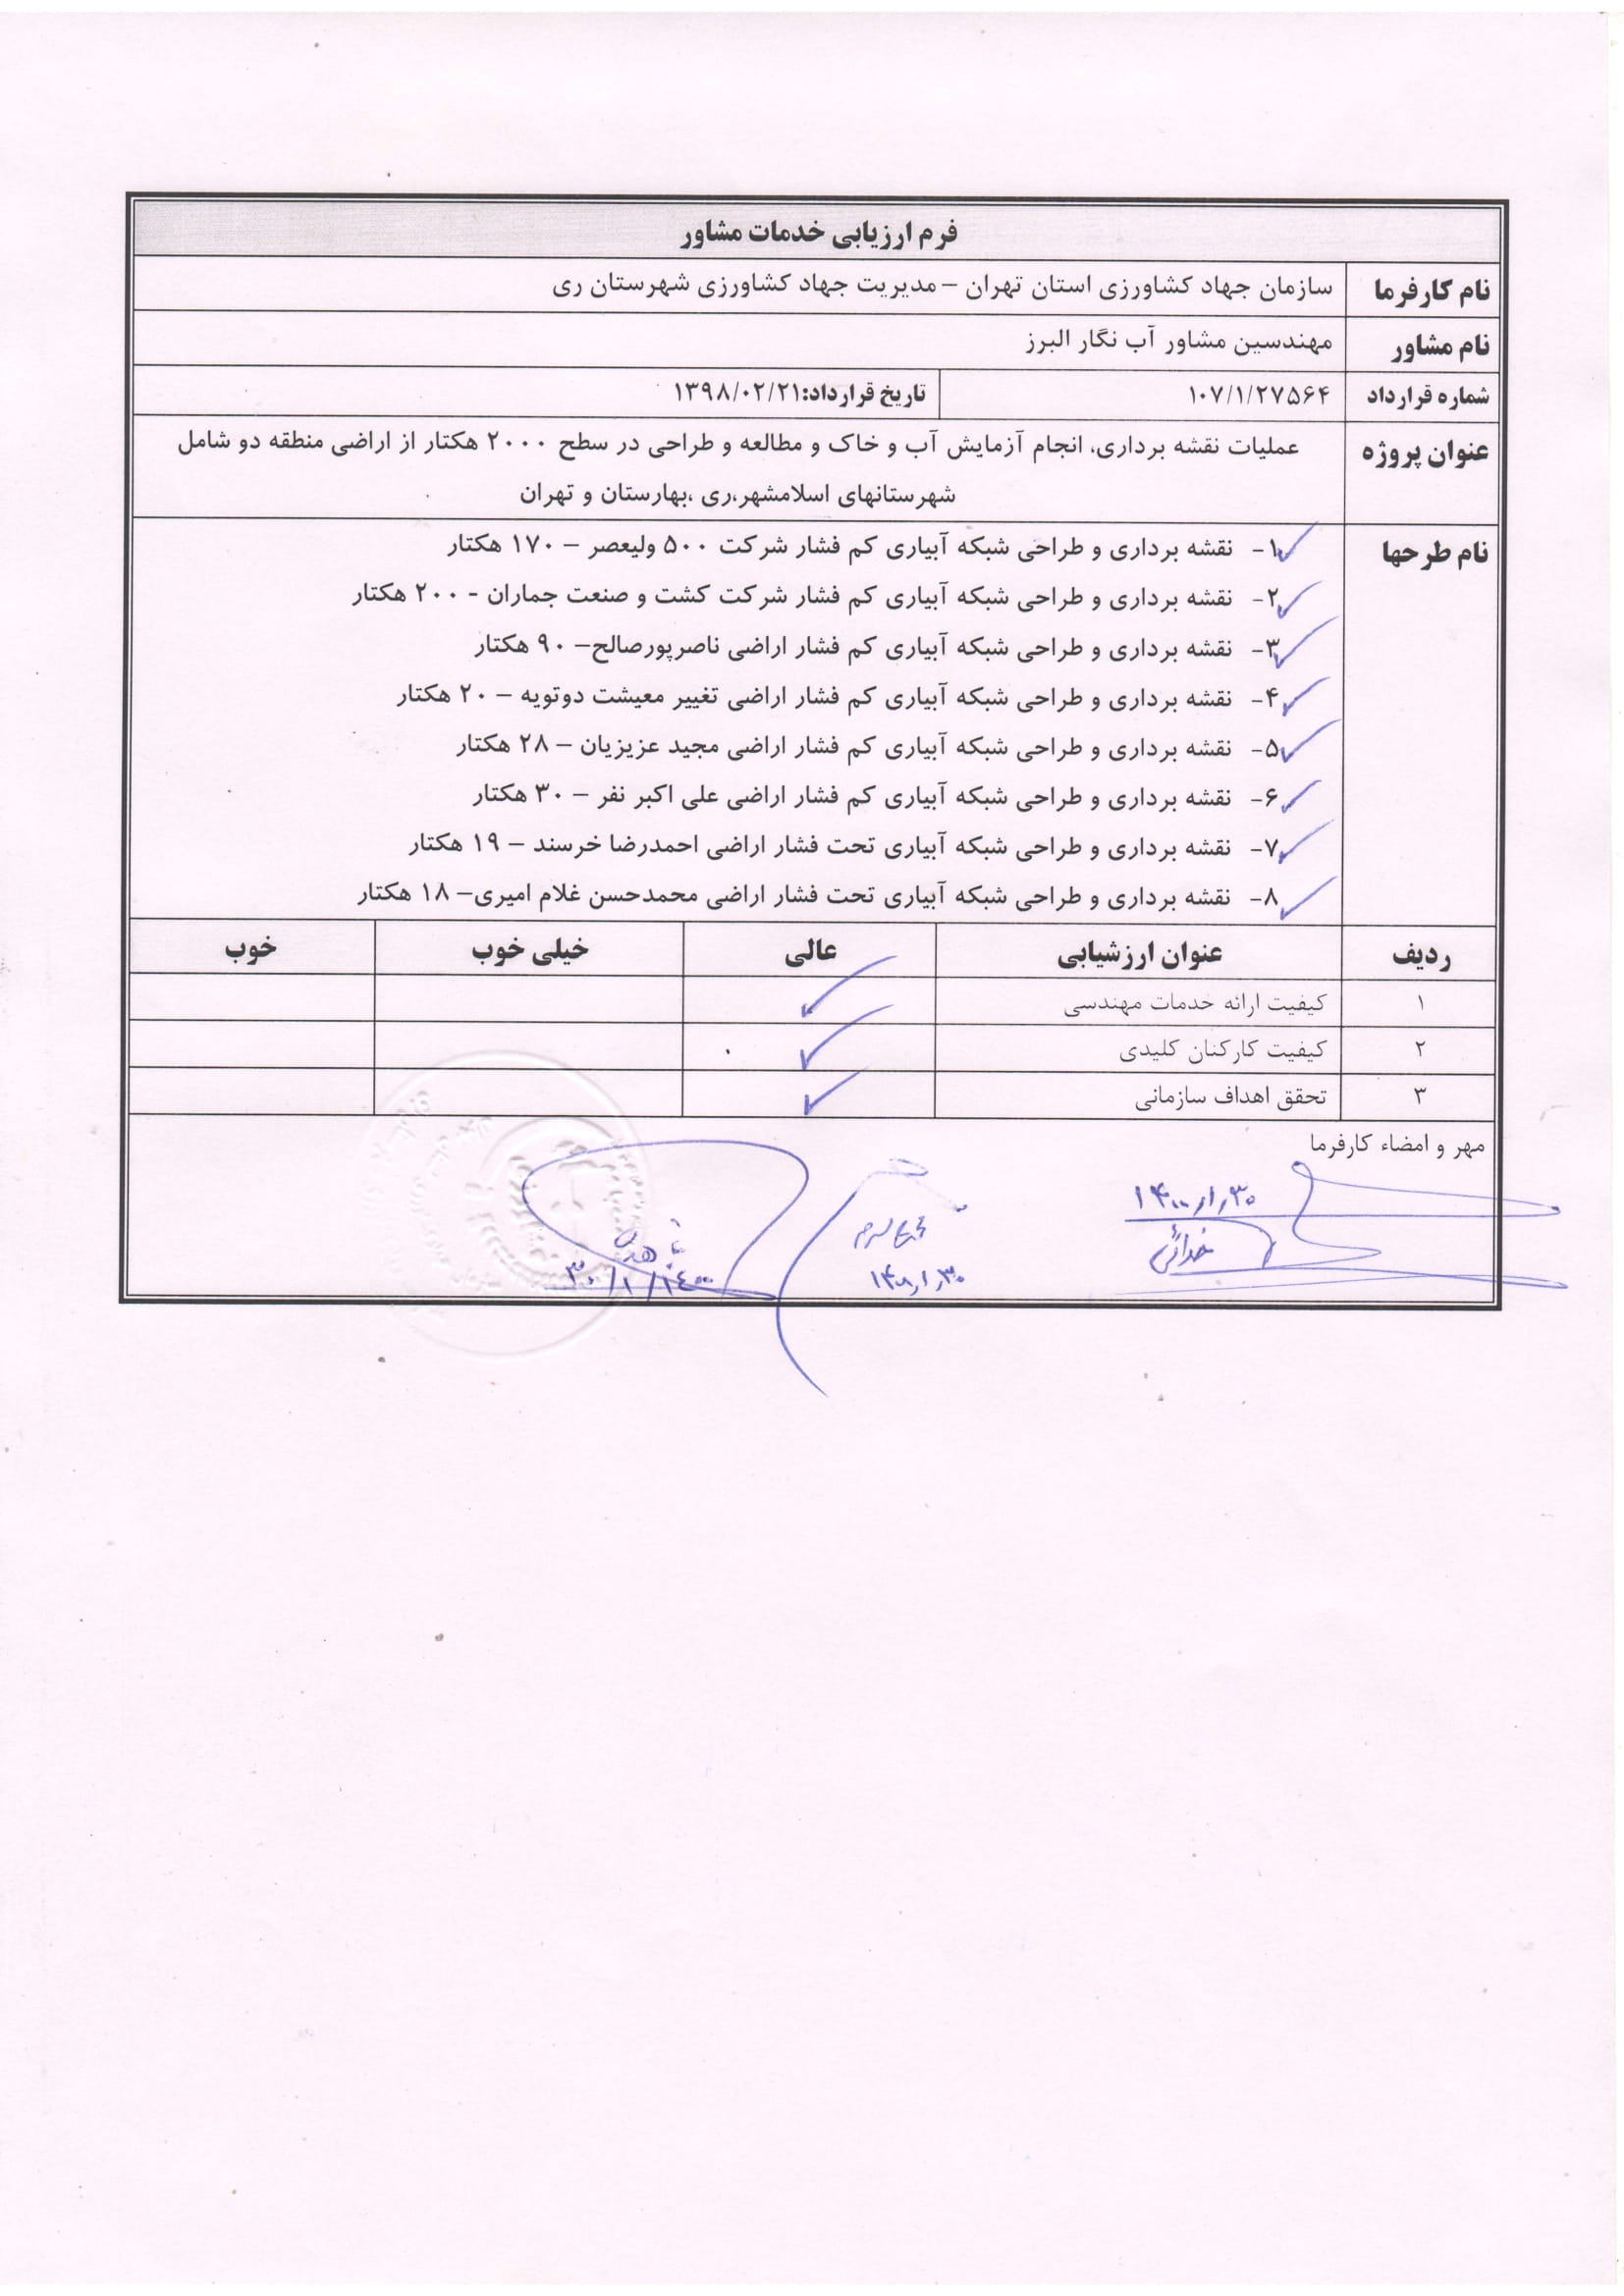 فرم ارزیابی خدمات مشاور
نام کارفرما سازمان جهاد کشاورزی استان تهران – مدیریت جهاد کشاورزی شهرستان ری
نام مشاور مهندسین مشاور آب نگار البرز
شماره قرارداد ۱۰۷/۱/۲۷۵۶۴ تاریخ قرارداد:۱۳۹۸/۰۲/۲۱
عنوان پروژه عملیات نقشه برداری، انجام آزمایش آب و خاک و مطالعه و طراحی در سطح ۲۰۰۰ هکتار از اراضی منطقه دو شامل
شهرستانهای اسلامشهر،ری ،بهارستان و تهران
نام طرحها ۱- نقشه برداری و طراحی شبکه آبیاری کم فشار شرکت ۵۰۰ ولیعصر – ۱۷۰ هکتار
۲- نقشه برداری و طراحی شبکه آبیاری کم فشار شرکت کشت و صنعت جماران - ۲۰۰ هکتار
۳- نقشه برداری و طراحی شبکه آبیاری کم فشار اراضی ناصرپورصالح– ۹۰ هکتار
۴- نقشه برداری و طراحی شبکه آبیاری کم فشار اراضی تغییر معیشت دوتویه – ۲۰ هکتار
۵- نقشه برداری و طراحی شبکه آبیاری کم فشار اراضی مجید عزیزیان – ۲۸ هکتار
۶- نقشه برداری و طراحی شبکه آبیاری کم فشار اراضی علی اکبر نفر – ۳۰ هکتار
۷- نقشه برداری و طراحی شبکه آبیاری تحت فشار اراضی احمدرضا خرسند – ۱۹ هکتار
۸- نقشه برداری و طراحی شبکه آبیاری تحت فشار اراضی محمدحسن غلام امیری– ۱۸ هکتار
ردیف عنوان ارزشیابی عالی خیلی خوب خوب
۱ کیفیت ارائه خدمات مهندسی
۲ کیفیت کارکنان کلیدی
۳ تحقق اهداف سازمانی
مهر و امضاء کارفرما
۱۴۰۰٫۱٫۳۰
خدائی
۱۴۰۰٫۱٫۳۰
۱۴۰۰/۱/۳۰